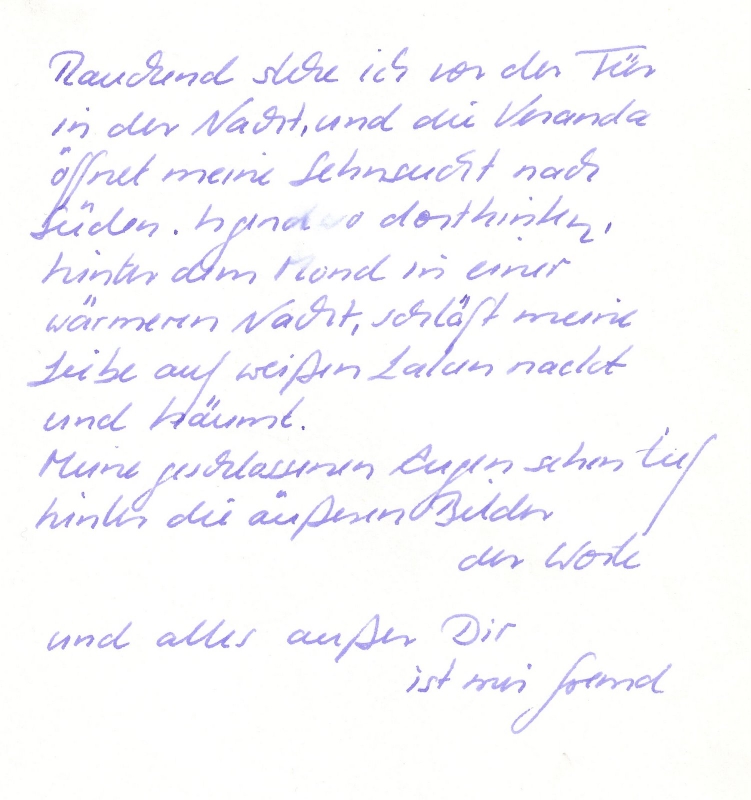 Rauchend stehe ich vor der Tür
in der Nacht, und die Veranda
öffnet meine Sehnsucht nach
Süden. Irgendwo dorthinten,
hinter dem Mond in einer
wärmeren Nacht, schläft meine
Leibe auf weißen Laken nackt
und träumt.
Meine geschlossenen Augen sehen tief
hinter die äußeren Bilder
der Worte
und alles außer Dir
ist mir fremd